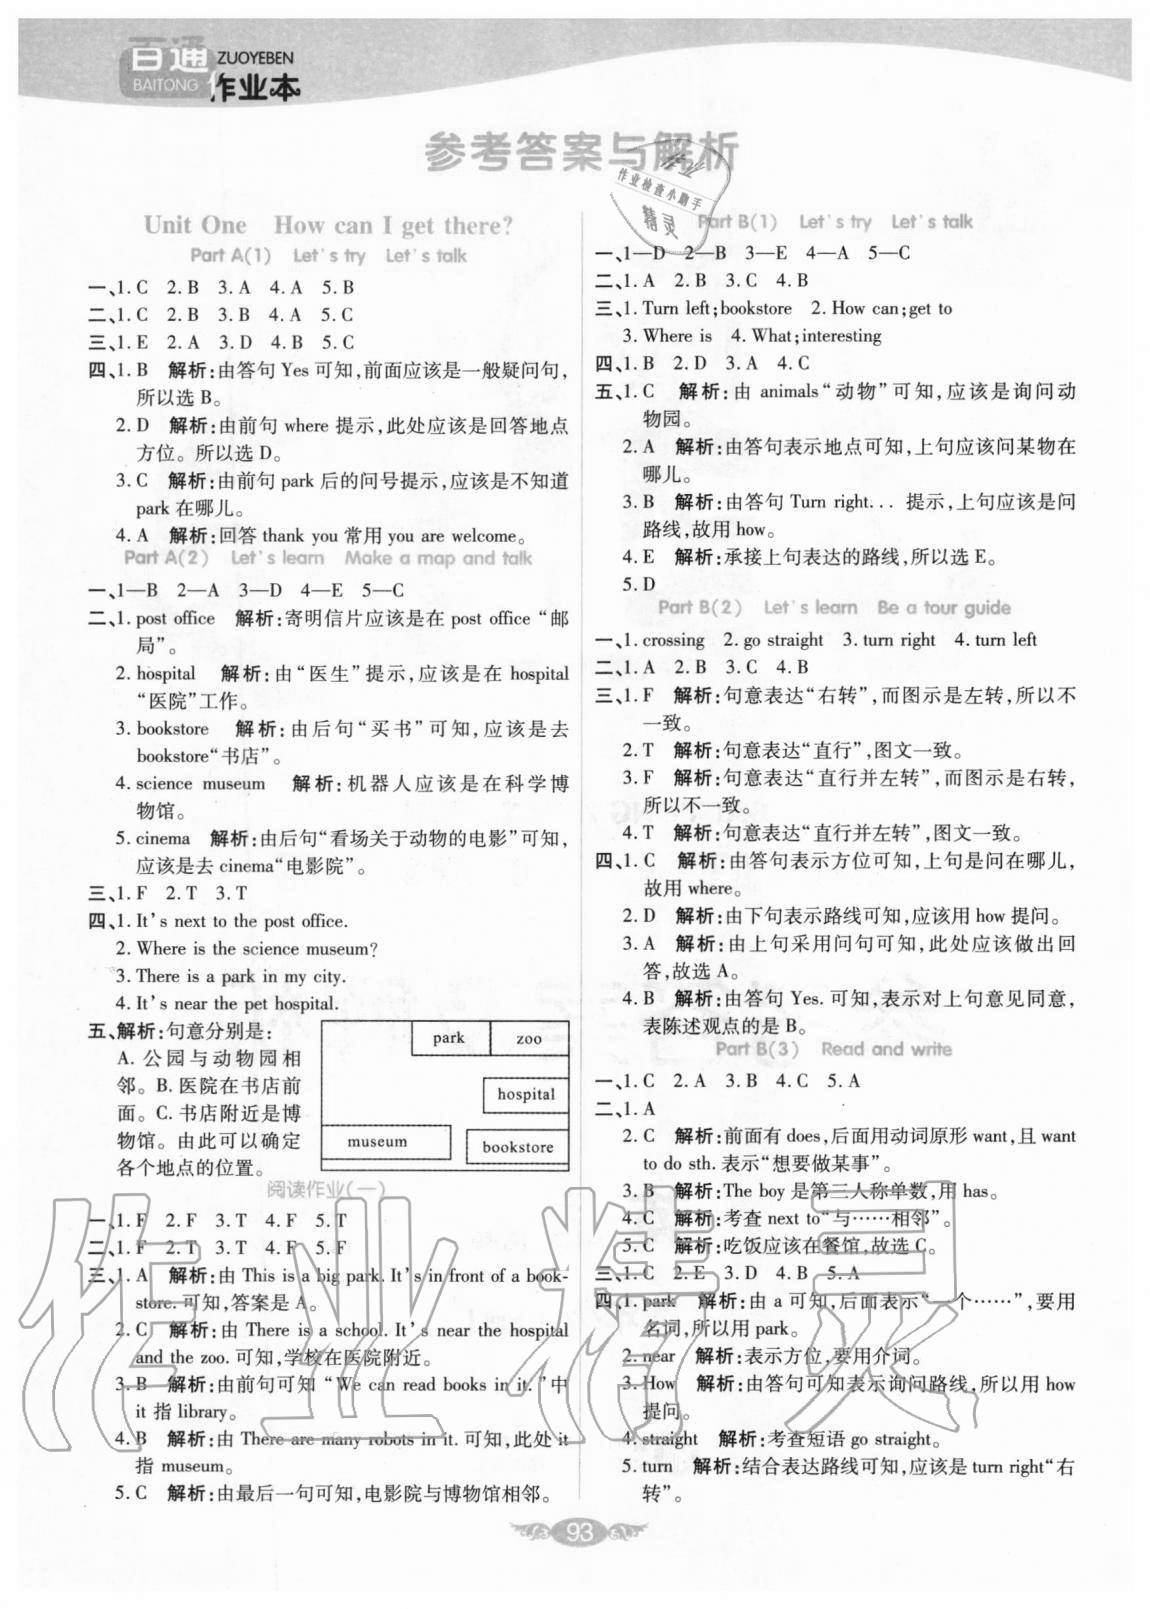 百通 ZUOYEBEN
BAITONG 作业本
参考答案与解析
作业检查小助手
精灵
Unit One　How can I get there?
Part A(1)　Let's try　Let's talk
一、1. C　2. B　3. A　4. A　5. B
二、1. C　2. B　3. B　4. A　5. C
三、1. E　2. A　3. D　4. B　5. C
四、1. B　解析:由答句 Yes 可知,前面应该是一般疑问句,
所以选 B。
2. D　解析:由前句 where 提示,此处应该是回答地点
方位。所以选 D。
3. C　解析:由前句 park 后的问号提示,应该是不知道
park 在哪儿。
4. A　解析:回答 thank you 常用 you are welcome。
Part A(2)　Let's learn　Make a map and talk
一、1—B　2—A　3—D　4—E　5—C
二、1. post office　解析:寄明信片应该是在 post office “邮
局”。
2. hospital　解析:由“医生”提示,应该是在 hospital
“医院”工作。
3. bookstore　解析:由后句“买书”可知,应该是去
bookstore“书店”。
4. science museum　解析:机器人应该是在科学博
物馆。
5. cinema　解析:由后句“看场关于动物的电影”可知,
应该是去 cinema“电影院”。
三、1. F　2. T　3. T
四、1. It's next to the post office.
2. Where is the science museum?
3. There is a park in my city.
4. It's near the pet hospital.
五、解析:句意分别是:
A. 公园与动物园相
邻。B. 医院在书店前
面。C. 书店附近是博
物馆。由此可以确定
各个地点的位置。
park　zoo
hospital
museum
bookstore
阅读作业(一)
一、1. F　2. F　3. T　4. F　5. T
二、1. F　2. T　3. T　4. F　5. F
三、1. A　解析:由 This is a big park. It's in front of a book-
store. 可知,答案是 A。
2. C　解析:由 There is a school. It's near the hospital
and the zoo. 可知,学校在医院附近。
3. B　解析:由前句可知“We can read books in it.”中
it 指 library。
4. B　解析:由 There are many robots in it. 可知,此处 it
指 museum。
5. C　解析:由最后一句可知,电影院与博物馆相邻。
Part B(1)　Let's try　Let's talk
一、1—D　2—B　3—E　4—A　5—C
二、1. A　2. B　3. C　4. B
三、1. Turn left;bookstore　2. How can;get to
3. Where is　4. What;interesting
四、1. B　2. D　3. A　4. C
五、1. C　解析:由 animals“动物”可知,应该是询问动
物园。
2. A　解析:由答句表示地点可知,上句应该问某物在
哪儿。
3. B　解析:由答句 Turn right... 提示,上句应该是问
路线,故用 how。
4. E　解析:承接上句表达的路线,所以选 E。
5. D
Part B(2)　Let's learn　Be a tour guide
一、1. crossing　2. go straight　3. turn right　4. turn left
二、1. A　2. B　3. C　4. B
三、1. F　解析:句意表达“右转”,而图示是左转,所以不
一致。
2. T　解析:句意表达“直行”,图文一致。
3. F　解析:句意表达“直行并左转”,而图示是右转,
所以不一致。
4. T　解析:句意表达“直行并左转”,图文一致。
四、1. C　解析:由答句表示方位可知,上句是问在哪儿,
故用 where。
2. D　解析:由下句表示路线可知,应该用 how 提问。
3. A　解析:由上句采用问句可知,此处应该做出回
答,故选 A。
4. B　解析:由答句 Yes. 可知,表示对上句意见同意,
表陈述观点的是 B。
Part B(3)　Read and write
一、1. C　2. A　3. B　4. C　5. A
二、1. A
2. C　解析:前面有 does,后面用动词原形 want,且 want
to do sth. 表示“想要做某事”。
3. B　解析:The boy 是第三人称单数,用 has。
4. C　解析:考查 next to“与……相邻”。
5. C　解析:吃饭应该在餐馆,故选 C。
三、1. C　2. E　3. D　4. B　5. A
四、1. park　解析:由 a 可知,后面表示“一个……”,要用
名词,所以用 park。
2. near　解析:表示方位,要用介词。
3. How　解析:由答句可知表示询问路线,所以用 how
提问。
4. straight　解析:考查短语 go straight。
5. turn　解析:结合表达路线可知,应该是 turn right“右
转”。
作业精灵
93